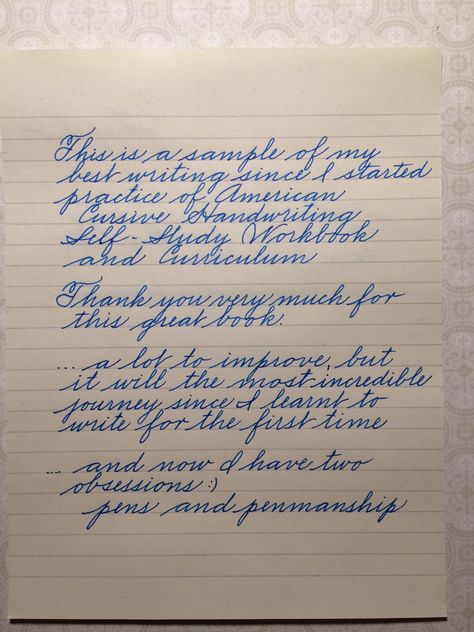 This is a sample of my
best writing since I started
practice of American
Cursive Handwriting
Self-Study Workbook
and Curriculum
Thank you very much for
this great book.
... a lot to improve, but
it will the most incredible
journey since I learnt to
write for the first time
.... and now I have two
obsessions :)
pens and penmanship